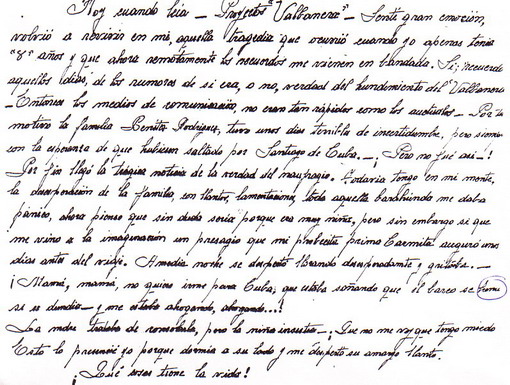 Hoy cuando leía - Proyecto "Valbanera" - Sentí gran emoción,
volvió a revivir en mí, aquella tragedia que ocurrió cuando yo apenas tenía
"8" años y que ahora remotamente los recuerdos me vienen en bandada. Sí; recuerdo
aquellos días, de los rumores de si era, o no, verdad del hundimiento del Valbanera
- Entonces los medios de comunicación, no eran tan rápidos como los
motivo la familia Benítez Rodríguez, tuvo unos días terrible de incertidumbre, pero siempre
con la esperanza de que hubiesen saltado por Santiago de Cuba. - ¡Pero no fué así -!
Por fin llegó la trágica noticia de la verdad del naufragio. Todavía tengo en mi mente,
la desesperación de la familia, con llantos, lamentaciones, toda aquella barahúnda me daba
pánico, ahora pienso que sin duda sería porque era muy niña, pero sin embargo si que
me vino a la imaginación un presagio que mi prima Carmita auguró unos
días antes del viaje. A media noche se despertó llorando desesperadamente y gritaba. -
¡Mamá, mamá, no quiero irme para Cuba, que estaba soñando que el barco se
si se hundía - y me estaba ahogando, ahogando...!
La madre trataba de consolarla, pero la niña insistía - Que no me voy que tengo miedo
Esto lo presencié yo porque dormía a su lado y me despertó su amargo llanto.
¡Qué cosas tiene la vida!